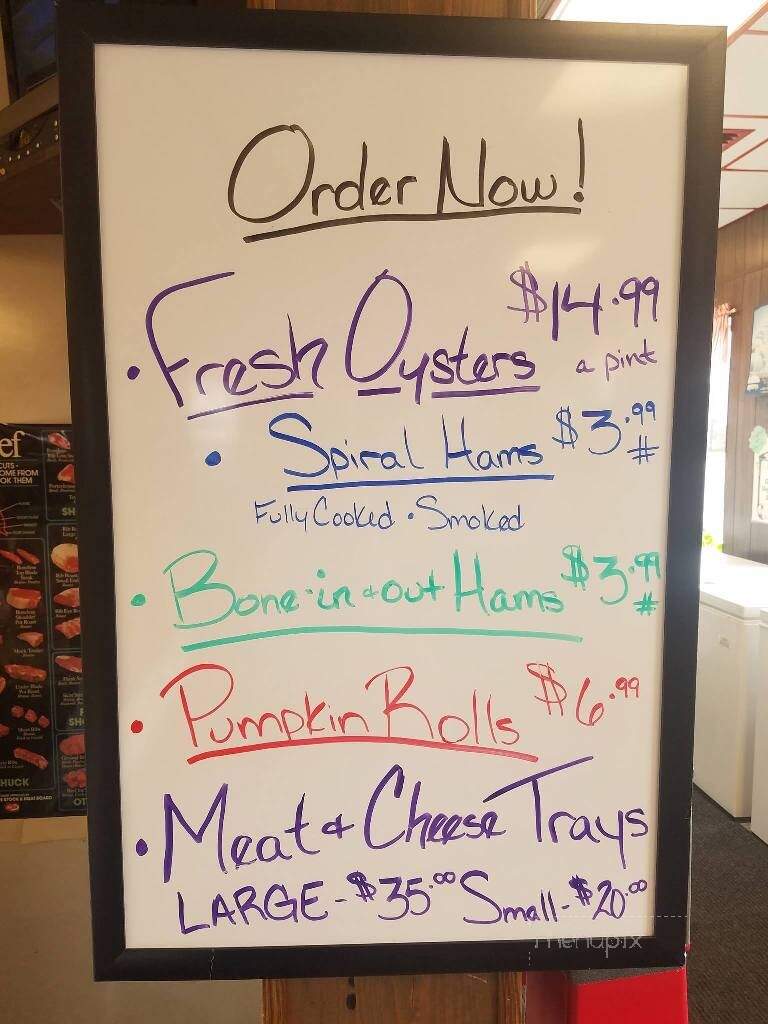 Order Now!
• Fresh Oysters $14.99
a pint
• Spiral Hams $3.99 #
Fully Cooked • Smoked
• Bone-in & out Hams $3.99 #
• Pumpkin Rolls $6.99
• Meat & Cheese Trays
LARGE - $35.00 Small - $20.00
menupix
ef
CUTS -
OME FROM
OK THEM
HUCK